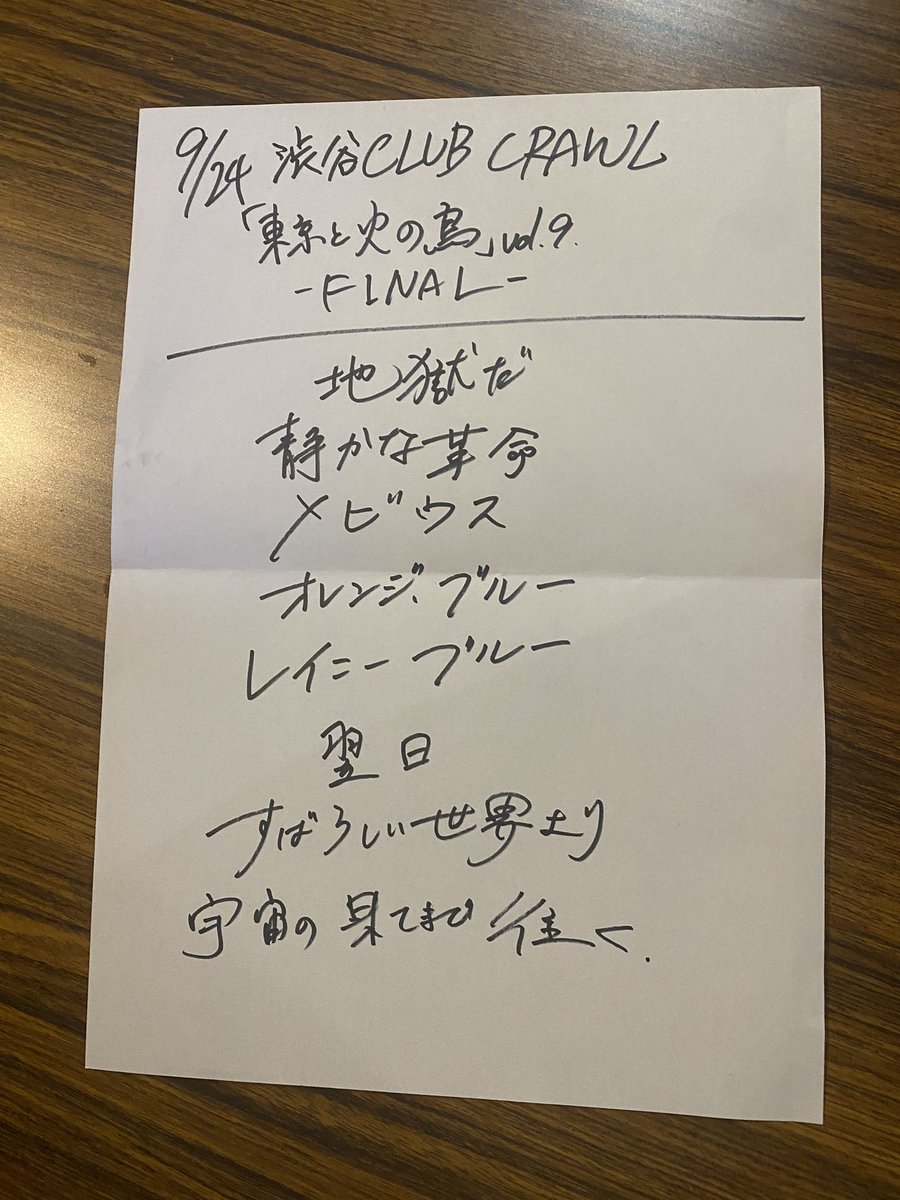 9/24 渋谷CLUB CRAWL
「東京と火の鳥」vol.9.
-FINAL-
地獄だ
静かな革命
メビウス
オレンジ.ブルー
レイニーブルー
翌日
すばらしい世界より
宇宙の果てまで往く.